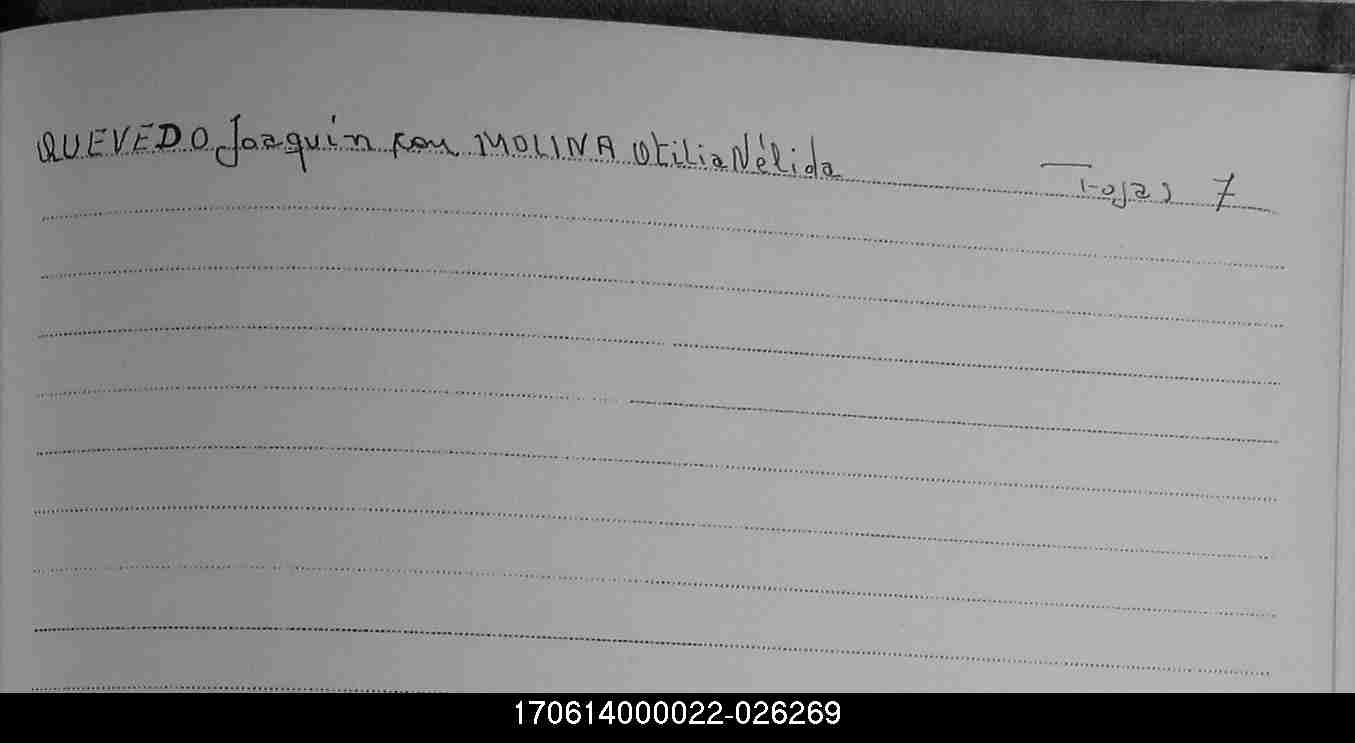 QUEVEDO Joaquin con MOLINA Otilia Nélida Fojas 7
170614000022-026269